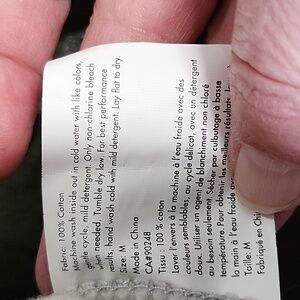 Fabric: 100% Cotton
Machine wash inside out in cold water with like colors,
gentle cycle, mild detergent. Only non-chlorine bleach
when needed. Tumble dry low. For best performance
results, hand wash cold with mild detergent. Lay flat to dry.
Size: M
Made in China
CA#90248
Tissu : 100 % coton
Laver l'envers à la machine à l'eau froide avec des
couleurs semblables, au cycle délicat, avec un détergent
doux. Utiliser un agent de blanchiment non chloré
au besoin seulement. Sécher par culbutage à basse
température. Pour obtenir les meilleurs résultats,
la main à l'eau froide
Taille: M
Fabriqué en